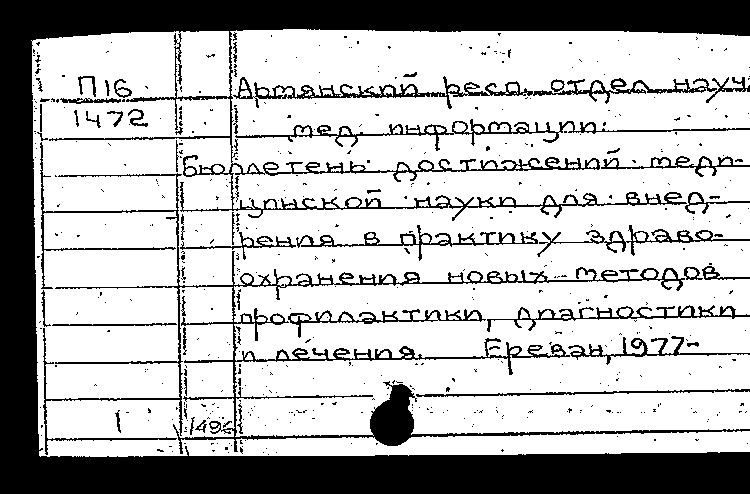 П16
1472
Армянский респ. отдел науч.
мед. информации.
Бюллетень достижений меди-
цинской науки для внед-
рения в практику здраво-
охранения новых методов
профилактики, диагностики
и лечения. Ереван, 1977-
1